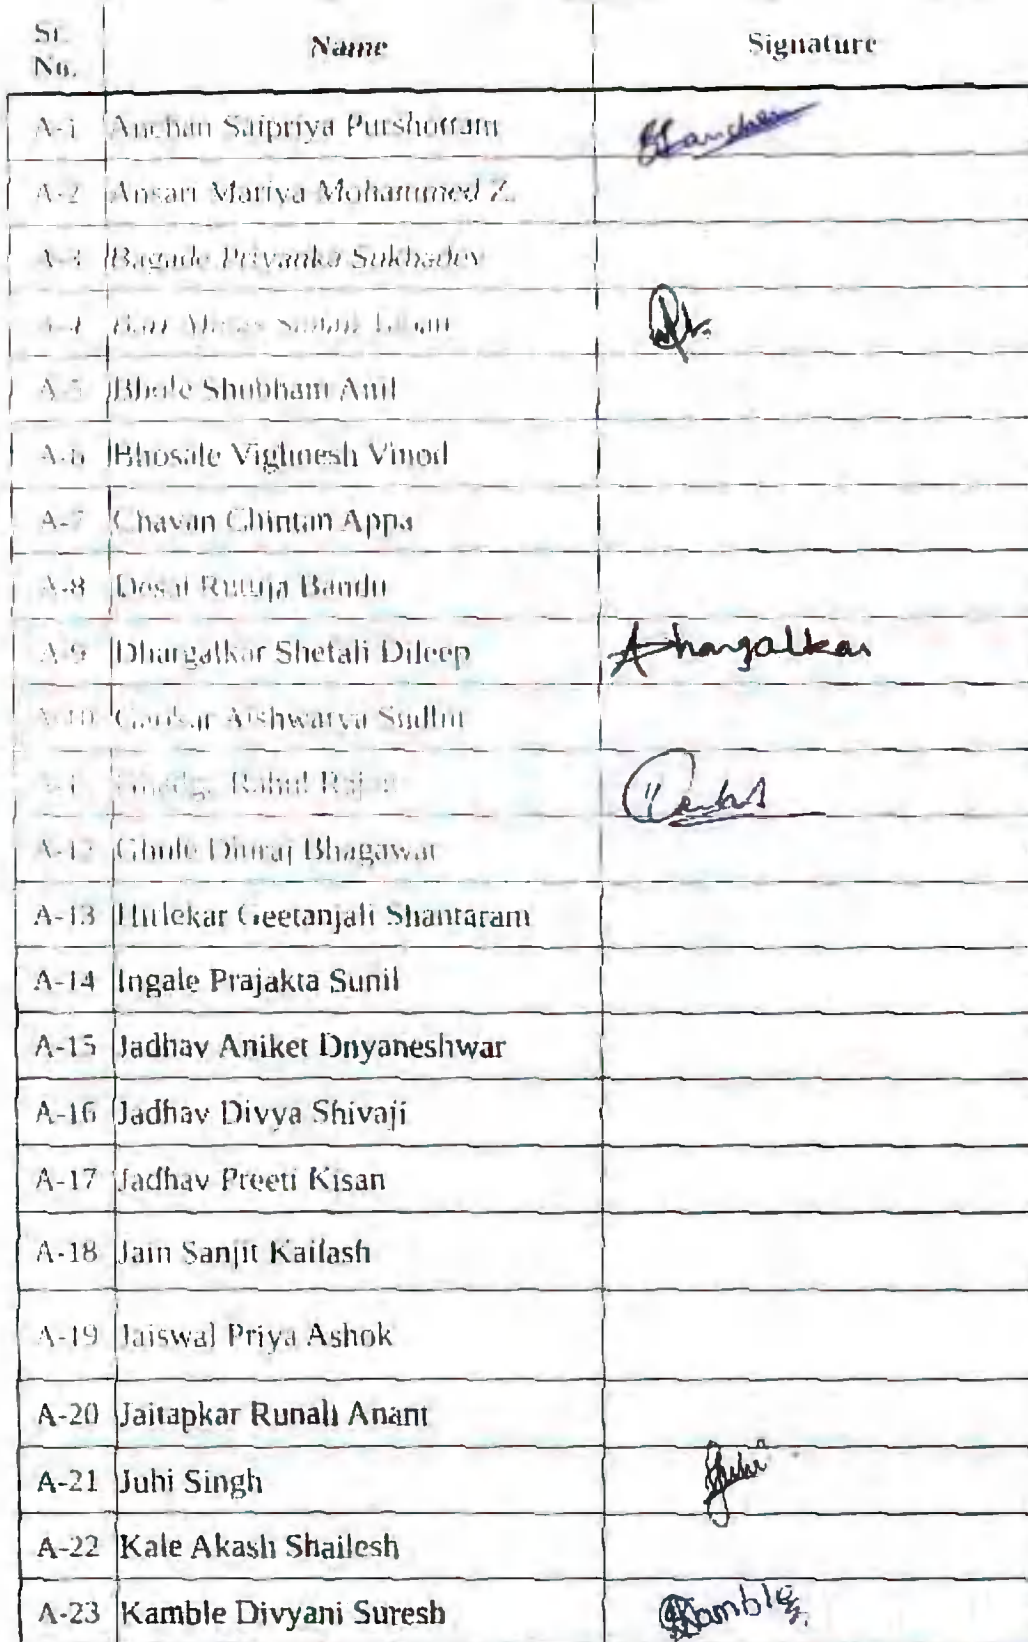 Sr. Name Signature
No.
A-1 Anchan Saipriya Purshottam
A-2 Ansari Mariya Mohammed Z.
A-3 Bagade Priyanka Sukhadev
A-4
A-5 Bhole Shubham Anil
A-6 Bhosale Vighnesh Vinod
A-7 Chavan Chintan Appa
A-8 Desai Rutuja Bandu
A-9 Dhargalkar Shefali Dileep Dhargalkar
A-10 Gaonkar Aishwarya Sudhir
Rahul
A-12 Ghule Dhiraj Bhagawat
A-13 Hirlekar Geetanjali Shantaram
A-14 Ingale Prajakta Sunil
A-15 Jadhav Aniket Dnyaneshwar
A-16 Jadhav Divya Shivaji
A-17 Jadhav Preeti Kisan
A-18 Jain Sanjit Kailash
A-19 Jaiswal Priya Ashok
A-20 Jaitapkar Runali Anant
A-21 Juhi Singh Juhi
A-22 Kale Akash Shailesh
A-23 Kamble Divyani Suresh Kamble